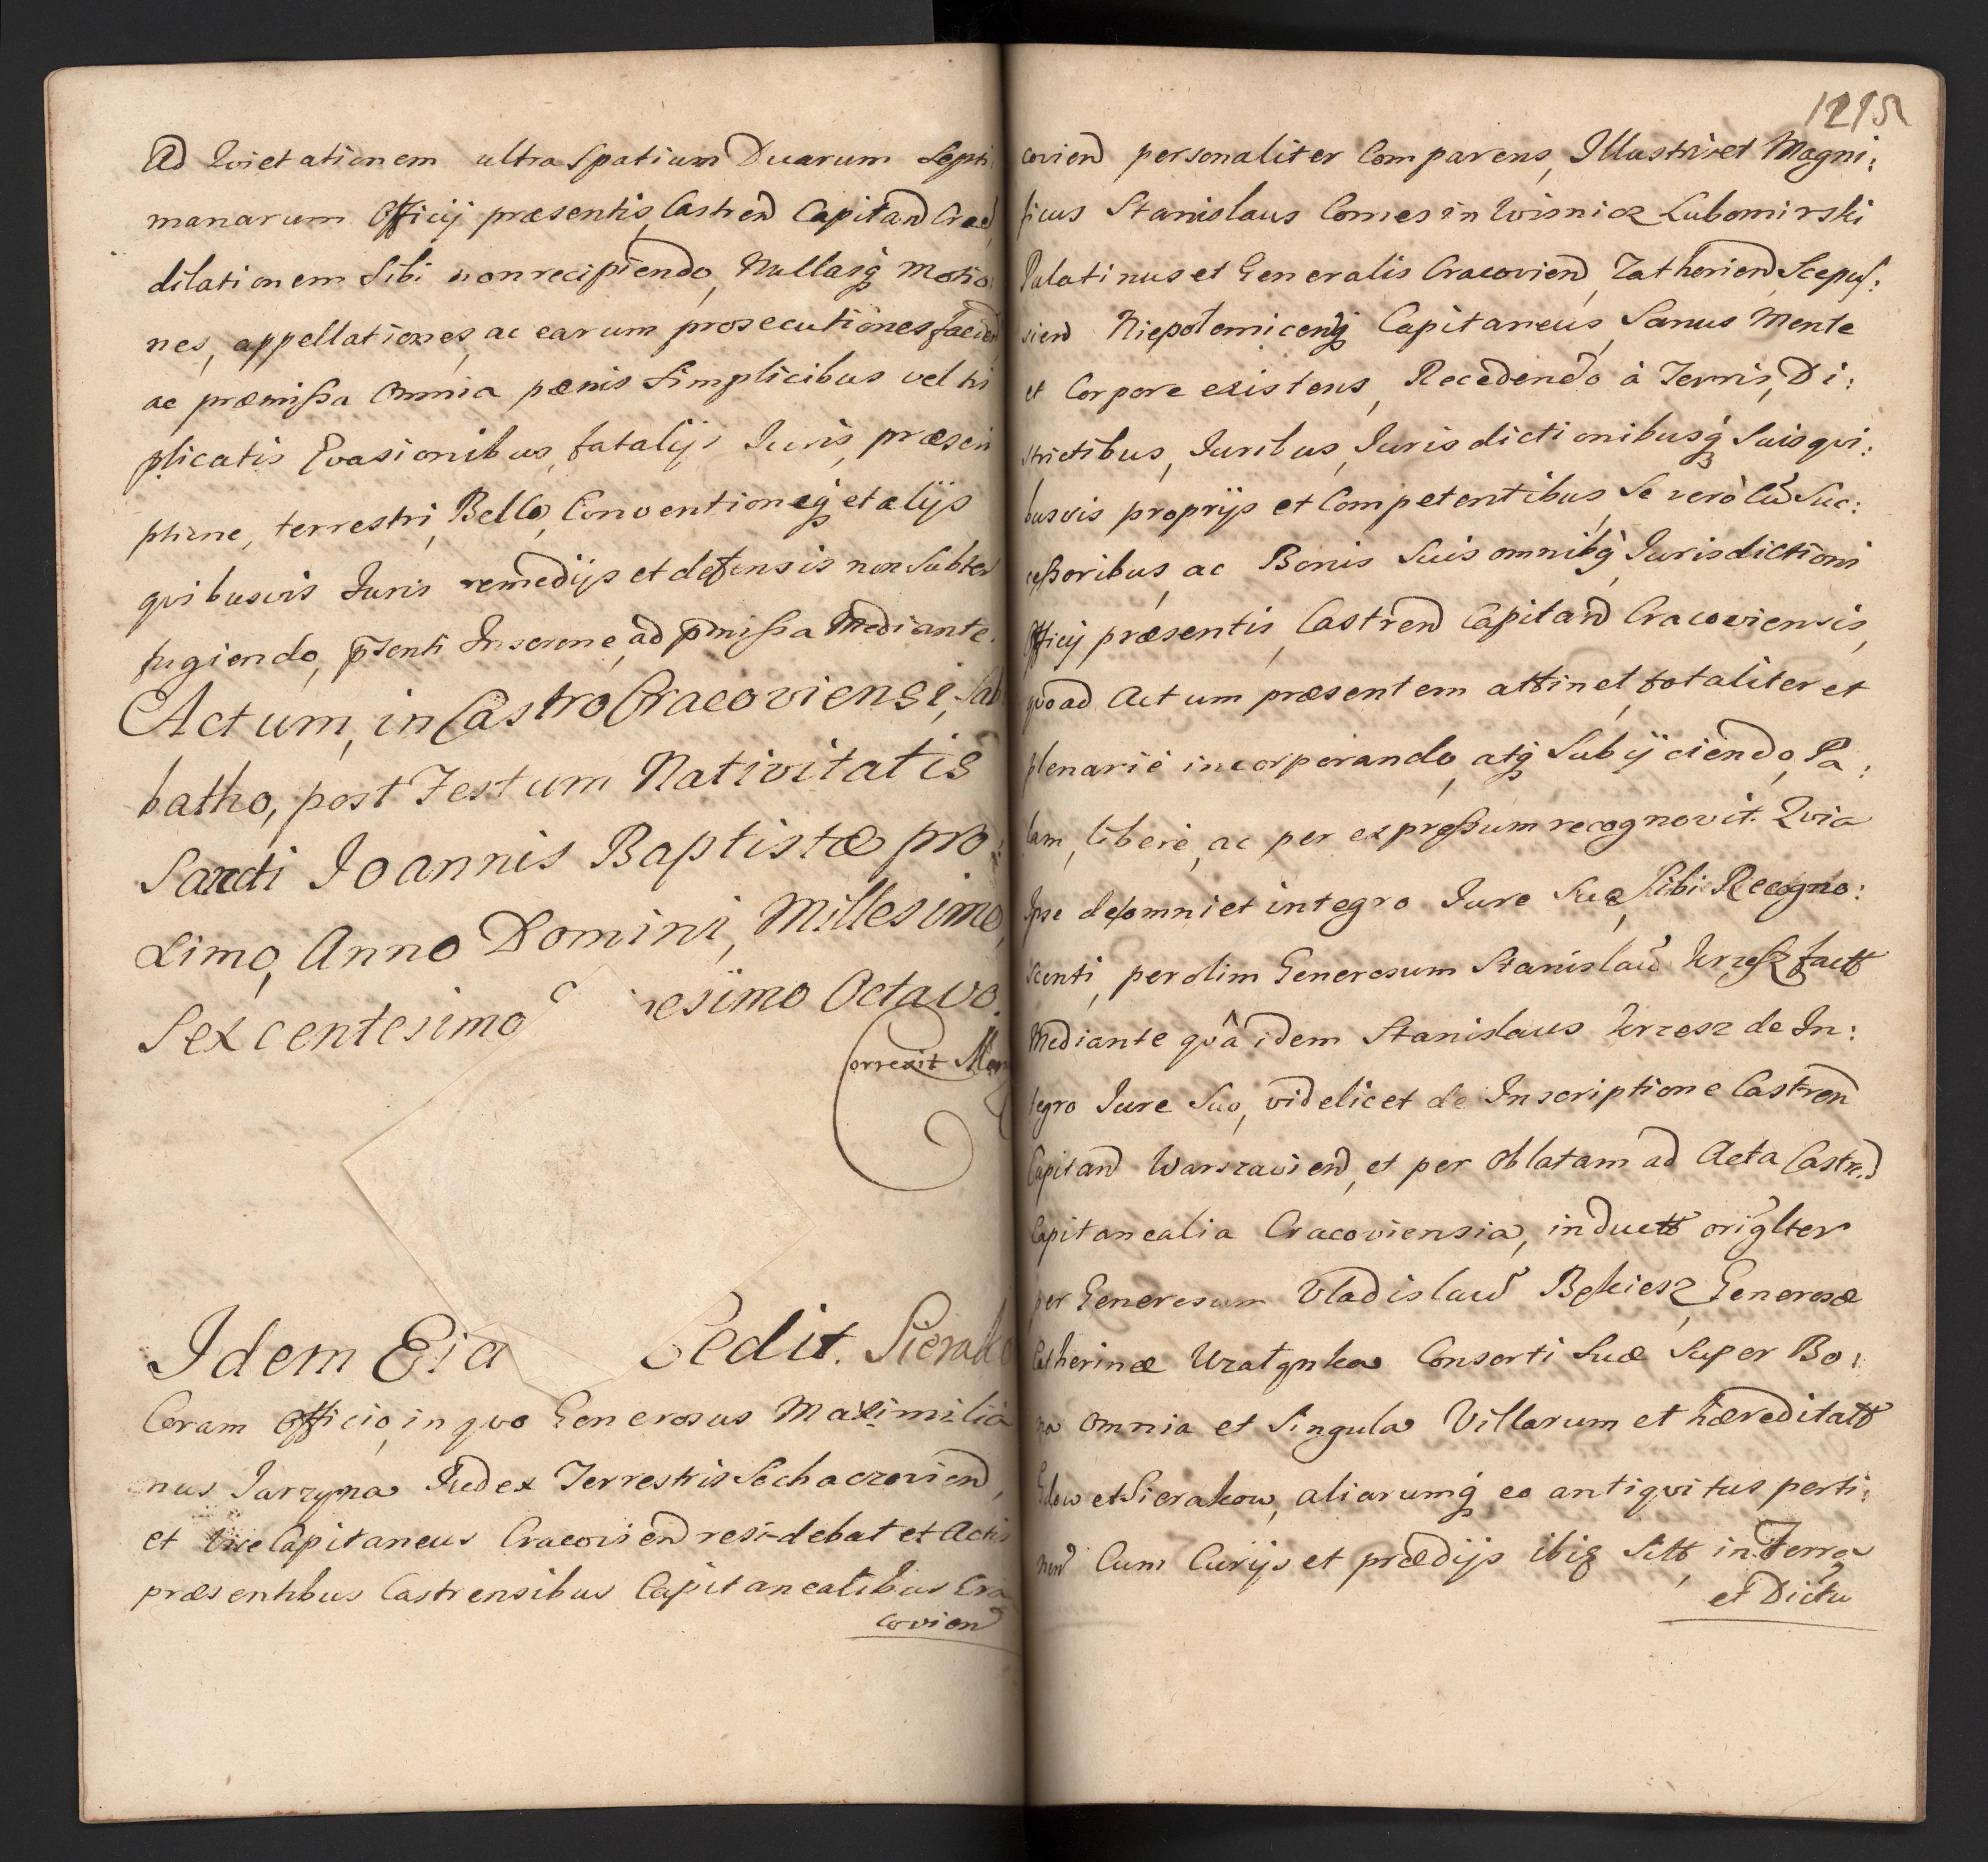 Ad Qvietationem ultra Spatium Duarum Septi:
manarum Officij præsentis, Castren Capitan Crac
dilationem Sibi non recipiendo, Nullasq Motio
nes, appellationes, ac earum prosecutiones facien
ac præmissa Omnia pænis Simplicibus vel tri
plicatis Evasionibus, fatalijs Juris, præscri
ptione, terrestri, Bello, Conventioneq et alijs
qvibusvis Juris remedijs et defensis non Subter
fugiendo, pnsenti Inscrone, ad pmissa Mediante.
Actum, in Castro Cracoviensi, Sab
batho, post Festum Nativitatis
Sancti Joannis Baptistæ pro:
ximo, Anno Domini, Millesimo,
Sexcentesimo esimo Octavo.
Correxit
Idem Eid Cedit. Sierako
Coram Officio, in qvo Generosus Maximilia
nus Jarzyna Judex Terrestris Sochaczovien,
et Vice Capitaneus Cracovien resi-debat et Actis
præsentibus Castrensibus Capitanealibus Cra
covien
1215
covien personaliter Comparens, Illustris et Magni:
ficus Stanislaus Comes in Wisnicz Lubomirski
Palatinus et Generalis Cracovien, Zathorien, Scepus:
sien Niepolomicenq Capitaneus, Sanus Mente
et Corpore existens, Recedendo à Terris, Di:
strictibus, Juribus, Jurisdictionibusq Suis qvi:
busvis proprijs et Competentibus, Se verò Cu Suc:
cessoribus, ac Bonis Suis omnibq Jurisdictioni
Officij præsentis, Castren Capitan Cracoviensis,
qvoad Actum præsentem attinet, totaliter et
plenariè incorporando, atq Subijciendo, Pa:
lam, liberè, ac per expressum recognovit. Qvia
Ipse de omni et integro Jure Suo, Sibi Recogno:
scenti, per olim Generosum Stanislau Wrzesz fact
Mediante qvâ idem Stanislaus Wrzesz de In:
tegro Jure Suo, videlicet de Inscriptione Castren
Capitan Warszavien, et per Oblatam ad Acta Castren
Capitanealia Cracoviensia, induct origlter
per Generosum Vladislau Bekiesz, Generosæ
Catherinæ Consorti Suæ Super Bo:
na Omnia et Singula Villarum et hæreditat
Gdow et Sierakow, aliarumq eo antiqvitus perti:
nen Cum Curijs et prædijs ibiq Sitt, in Terra
et Dictu